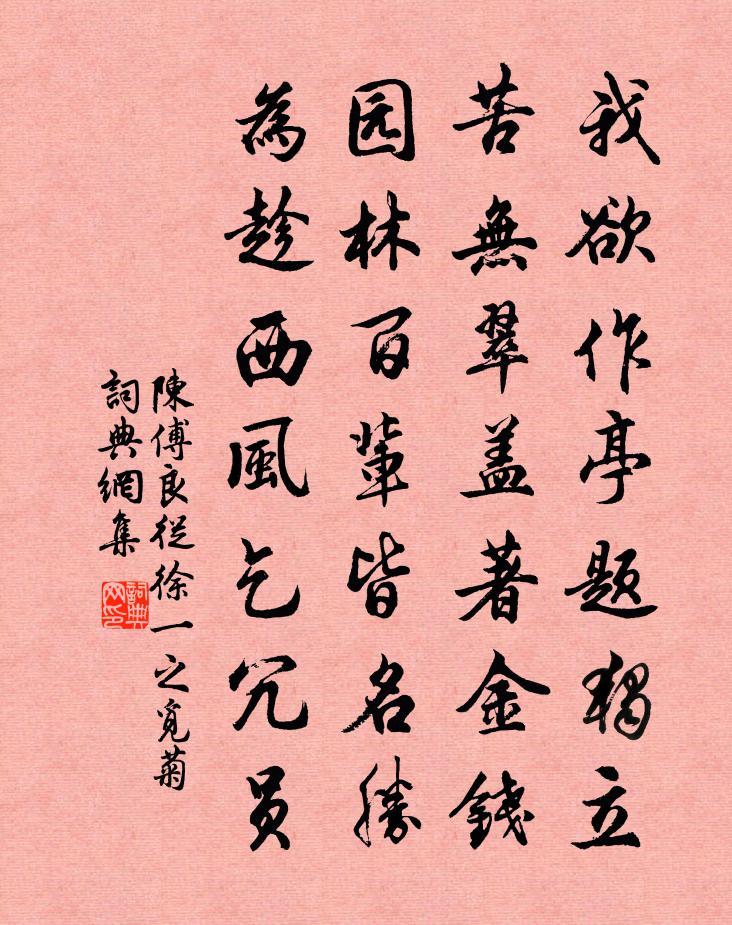 我欲作亭题独立
苦無翠盖著金錢
园林百輩皆名勝
為趁西風乞冗员
陳傅良從徐一之覓菊
詞典網集
詞典网印